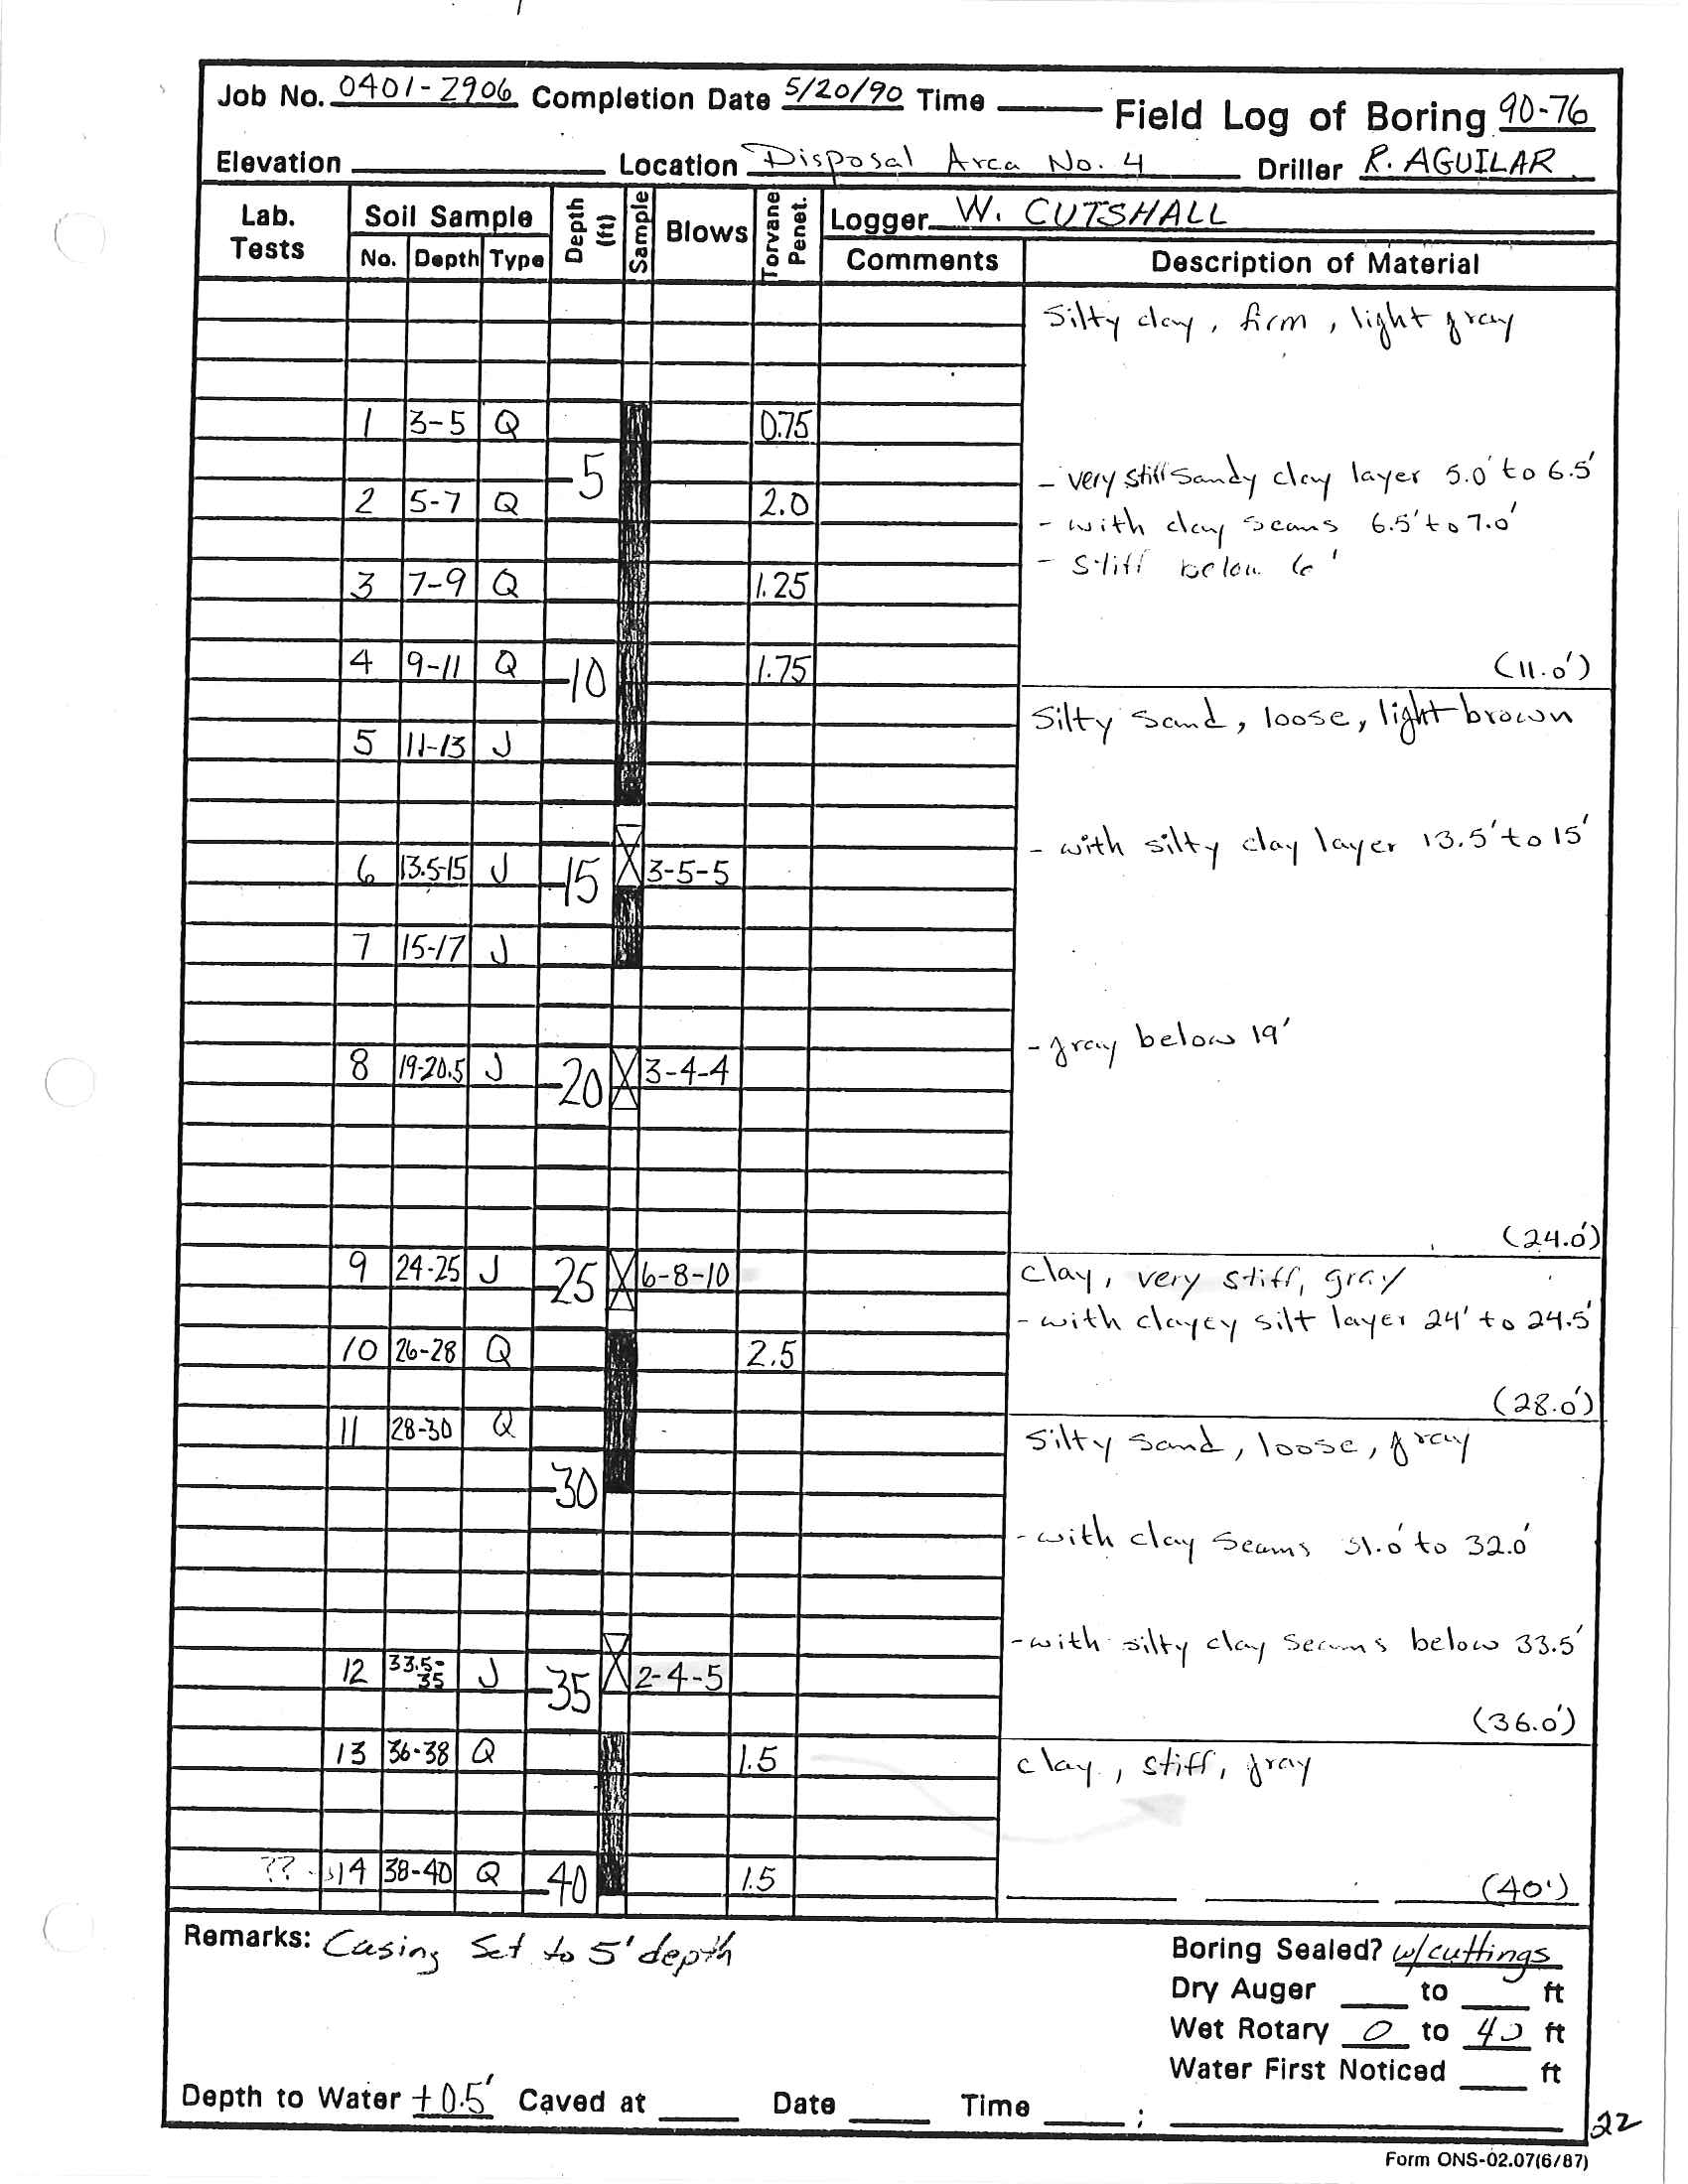 Job No. 0401-2906 Completion Date 5/20/90 Time Field Log of Boring 90-76
Elevation Location Disposal Area No. 4 Driller R. AGUILAR
Lab. Tests Soil Sample Depth (ft) Sample Blows Torvane Penet. Logger W. CUTSHALL
No. Depth Type Comments Description of Material
Silty clay, firm, light gray
1 3-5 Q 0.75
-5 - very stiff sandy clay layer 5.0' to 6.5'
2 5-7 Q 2.0 - with clay seams 6.5' to 7.0'
- Stiff below 6'
3 7-9 Q 1.25
4 9-11 Q -10 1.75 (11.0')
Silty sand, loose, light brown
5 11-13 J
- with silty clay layer 13.5' to 15'
6 13.5-15 J -15 3-5-5
7 15-17 J
- gray below 19'
8 19-20.5 J -20 3-4-4
(24.0')
9 24-25 J -25 6-8-10 clay, very stiff, gray
- with clayey silt layer 24' to 24.5'
10 26-28 Q 2.5
(28.0')
11 28-30 Q Silty sand, loose, gray
-30
- with clay seams 31.0' to 32.0'
- with silty clay seams below 33.5'
12 33.5-35 J -35 2-4-5
(36.0')
13 36-38 Q 1.5 clay, stiff, gray
?? 14 38-40 Q -40 1.5 (40')
Remarks: Casing Set to 5' depth
Boring Sealed? w/cuttings
Dry Auger to ft
Wet Rotary 0 to 40 ft
Water First Noticed ft
Depth to Water +0.5' Caved at Date Time ;
22
Form ONS-02.07(6/87)